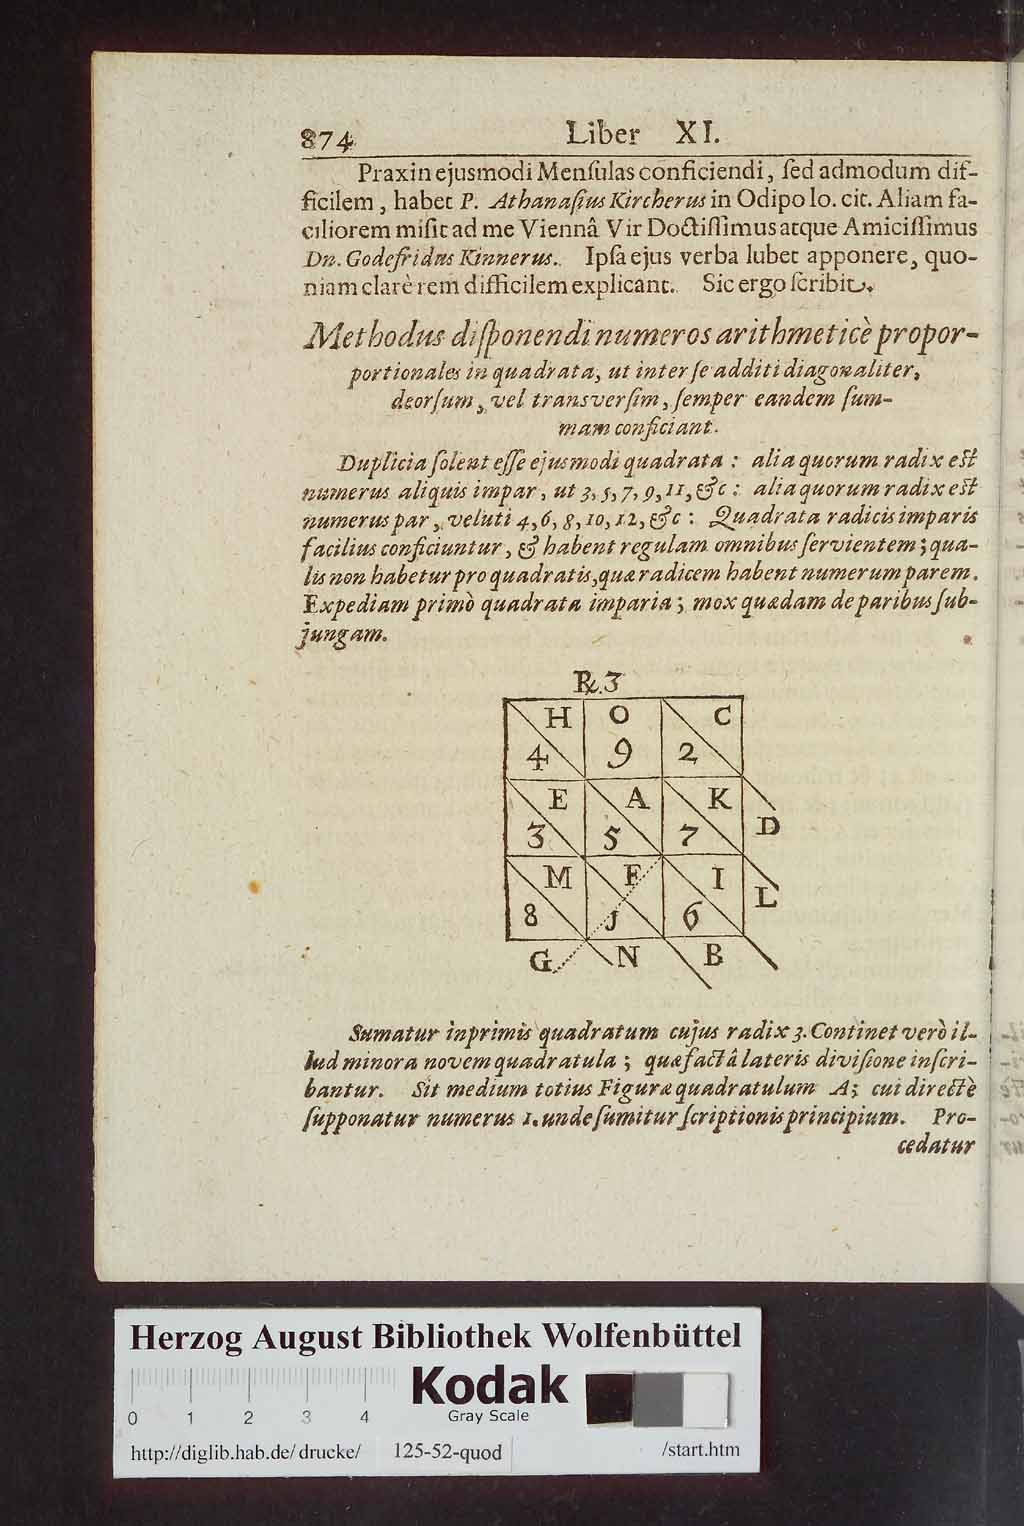 874 Liber XI.
Praxin ejusmodi Menſulas conficiendi, ſed admodum dif-
ficilem, habet P. Athanaſius Kircherus in Odipo lo. cit. Aliam fa-
ciliorem miſit ad me Viennâ Vir Doctiſſimus atque Amiciſſimus
Dn. Godefridus Kinnerus. Ipſa ejus verba lubet apponere, quo-
niam clarè rem difficilem explicant. Sic ergo ſcribit.
Methodus diſponendi numeros arithmeticè propor-
portionales in quadrata, ut inter ſe additi diagonaliter,
deorſum, vel transverſim, ſemper eandem ſum-
mam conficiant.
Duplicia ſolent eſſe ejusmodi quadrata: alia quorum radix est
numerus aliquis impar, ut 3, 5, 7, 9, 11, &c: alia quorum radix est
numerus par, veluti 4, 6, 8, 10, 12, &c: Quadrata radicis imparis
facilius conficiuntur, & habent regulam omnibus ſervientem; qua-
lis non habetur pro quadratis, quæ radicem habent numerum parem.
Expediam primò quadrata imparia; mox quædam de paribus ſub-
jungam.
℞. 3
H O C
4 9 2
E A K
3 5 7 D
M F I
8 1 6 L
G N B
Sumatur inprimis quadratum cujus radix 3. Continet verò il-
lud minora novem quadratula; quæ factâ lateris diviſione inſcri-
bantur. Sit medium totius Figuræ quadratulum A; cui directè
ſupponatur numerus 1. unde ſumitur ſcriptionis principium. Pro-
cedatur
Herzog August Bibliothek Wolfenbüttel
Kodak
Gray Scale
0 1 2 3 4
http://diglib.hab.de/drucke/ 125-52-quod /start.htm